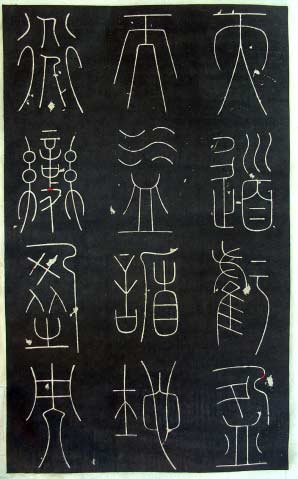 天道虧盈
而益謙地
道變盈而